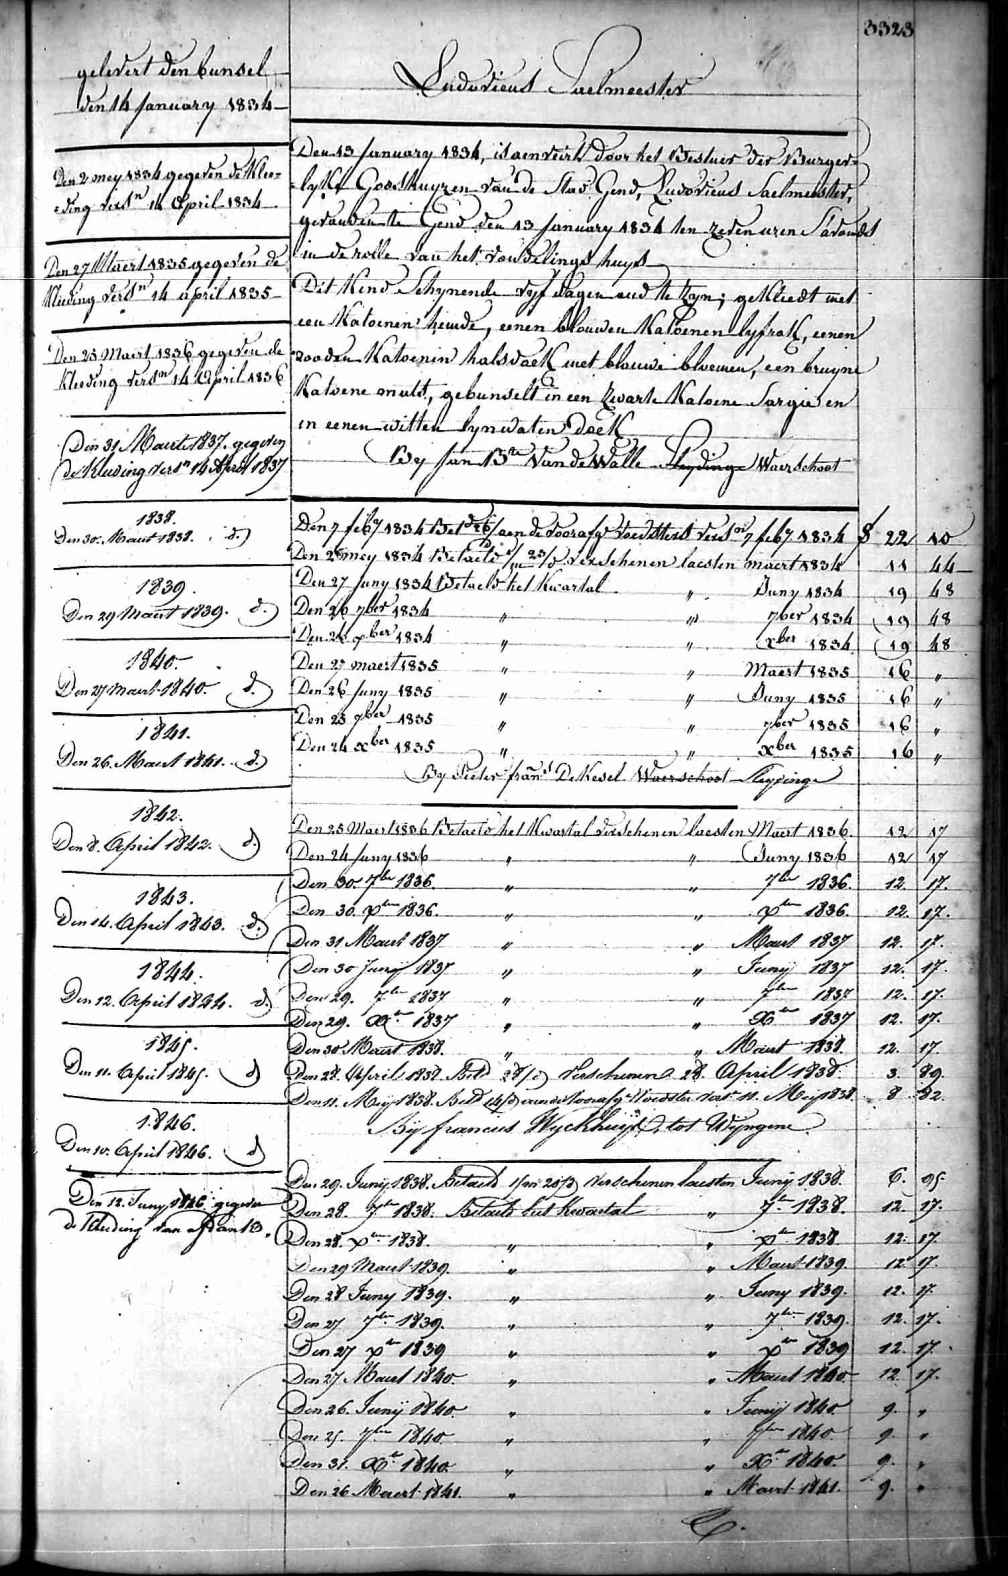 3323
gelevert den bunsel
den 14 January 1834
Den 2 mey 1834 gegeven de klee=
=ding vers.n 14 April 1834
Den 27 Maert 1835 gegeven de
kleeding vers.n 14 april 1835
Den 25 Maert 1836 gegeven de
kleeding vers.n 14 April 1836
Den 31 Maert 1837. gegeven
de kleeding vers.n 14 April 1837
1838.
Den 30. Maert 1838. d.o
1839.
Den 29 Maert 1839. d.o
1840.
Den 27 Maert 1840. d.o
1841.
Den 26. Maert 1841. d.o
1842.
Den 8. April 1842. d.o
1843.
Den 14. April 1843. d.o
1844.
Den 12. April 1844. d.o
1845.
Den 11. April 1845. d.o
1846.
Den 10. April 1846. d.o
Den 12. Juny 1846 gegeven
de kleeding van
Ludovicus Saelmeester
Den 13 January 1834, is aenveirt door het Bestuer der Burger=
=lyke Godshuyzen van de Stad Gend, Ludovicus Saelmeester,
gevonden te Gend den 13 January 1834 ten zeven uren S'avonds
in de rolle van het vondelings huys
Dit Kind Schynende vyf dagen oud te zyn; gekleedt met
een Katoenen hemde, eenen blouwen Katoenen lyfrok, eenen
rooden Katoenen halsdoek met blouwe bloemen, een bruyne
Katoene muts, gebunselt in een zwarte Katoene Sargie en
in eenen witten lynwaten doek
By Jan B.te Van de Walle Sleydinge Waerschoot
Den 7 feb.y 1834 Bet.d aen de voorafg. voedster vers.n 7 feb.y 1834 $ 22 10
Den 2 mey 1834 Betaelt verschenen laesten maert 1834 11 44
Den 27 Juny 1834 Betaelt het Kwartal " Juny 1834 19 48
Den 26 7ber 1834 " " 7ber 1834 19 48
Den 24 xber 1834 " " xber 1834 19 48
Den 27 maert 1835 " " Maert 1835 16 "
Den 26 Juny 1835 " " Juny 1835 16 "
Den 25 7ber 1835 " " 7ber 1835 16 "
Den 24 xber 1835 " " xber 1835 16 "
By Pieter fran.s De Kesel Waerschoot Sleydinge
Den 25 Maert 1836 Betaelt het Kwartal verschenen laesten Maert 1836. 12 17
Den 24 Juny 1836 " " Juny 1836 12 17
Den 30. 7ber 1836. " " 7ber 1836. 12. 17.
Den 30. xber 1836. " " xber 1836. 12. 17.
Den 31 Maert 1837 " " Maert 1837 12. 17.
Den 30 Juny 1837 " " Juny 1837 12. 17.
Den 29. 7ber 1837 " " 7ber 1837 12. 17.
Den 29. Xber 1837 " " Xber 1837 12. 17.
Den 30 Maert 1838. " " Maert 1838. 12. 17.
Den 28. April 1838 Bet.d verschenen 28. April 1838. 3. 89.
Den 11. Meij 1838. Bet.d aen de voorafg. Voedster vers. 11. Meij 1838. 8 32.
Bij francus Wyckhuyse, tot Wyngene.
Den 29. Junij 1838. Betaeld verschenen laesten Junij 1838. 6. 95.
Den 28. 7ber 1838. Betaeld het Kwartal " 7ber 1838. 12. 17.
Den 28. xber 1838. " " xber 1838 12. 17.
Den 29 Maert 1839. " " Maert 1839. 12 17.
Den 28 Juny 1839. " " Juny 1839. 12. 17.
Den 27 7ber 1839. " " 7ber 1839. 12. 17.
Den 27 xber 1839 " " xber 1839 12. 17.
Den 27 Maert 1840. " " Maert 1840 12. 17.
Den 26. Junij 1840. " " Junij 1840. 9. "
Den 25. 7ber 1840. " " 7ber 1840 9. "
Den 31. Xber 1840. " " Xber 1840 9. "
Den 26 Maert 1841. " " Maert 1841. 9. "